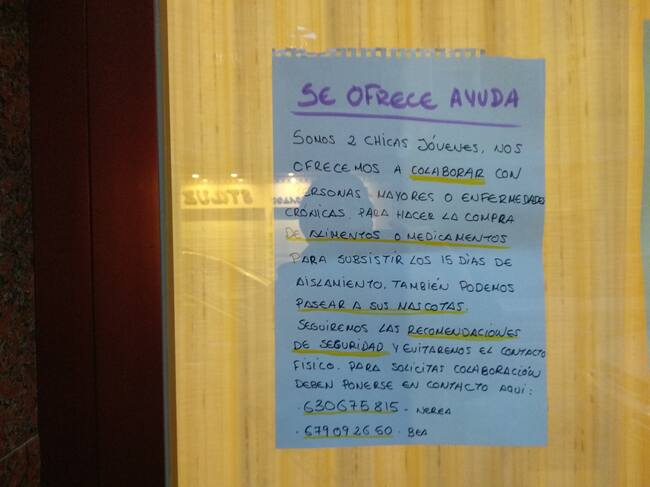 SE OFRECE AYUDA
SOMOS 2 CHICAS JÓVENES, NOS
OFRECEMOS A COLABORAR CON
PERSONAS MAYORES O ENFERMEDADES
CRÓNICAS, PARA HACER LA COMPRA
DE ALIMENTOS O MEDICAMENTOS
PARA SUBSISTIR LOS 15 DÍAS DE
AISLAMIENTO. TAMBIÉN PODEMOS
PASEAR A SUS MASCOTAS.
SEGUIREMOS LAS RECOMENDACIONES
DE SEGURIDAD Y EVITAREMOS EL CONTACTO
FÍSICO. PARA SOLICITAS COLABORACIÓN
DEBEN PONERSE EN CONTACTO AQUÍ:
· 630675815 · NEREA
· 679092650 · BEA